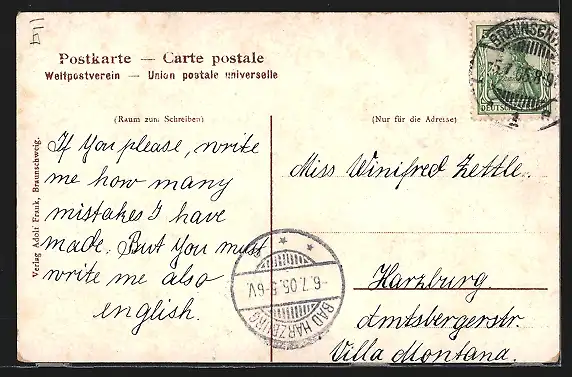 Postkarte — Carte postale
Weltpostverein — Union postale universelle
(Raum zum Schreiben)
(Nur für die Adresse)
If you please, write
me how many
mistakes I have
made. But you must
write me also
english.
Miss Winifred Zettle.
Harzburg.
Amtsbergerstr.
Villa Montana.
Verlag Adolf Frank, Braunschweig.
BRAUNSCHW
-6.7.05.5-6V.
BAD HARZBURG